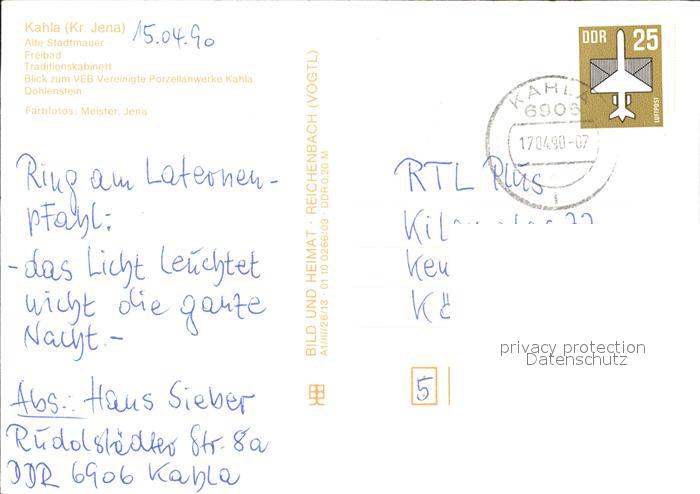 Kahla (Kr. Jena)
Alte Stadtmauer
Freibad
Traditionskabinett
Blick zum VEB Vereinigte Porzellanwerke Kahla
Dohlenstein
Farbfotos: Meister, Jena
15.04.90
Ring am Laternen-
pfahl:
-das Licht leuchtet
nicht die ganze
Nacht.-
Abs.: Hans Sieber
Rudolstädter Str. 8a
DDR 6906 Kahla
BILD UND HEIMAT · REICHENBACH (VOGTL)
A1/III/26/13 · 01 10 0266/03 · DDR 0,20 M
DDR 25
LUFTPOST
KAHLA
6906
17.04.90-07
1
RTL Plus
5
privacy protection
Datenschutz